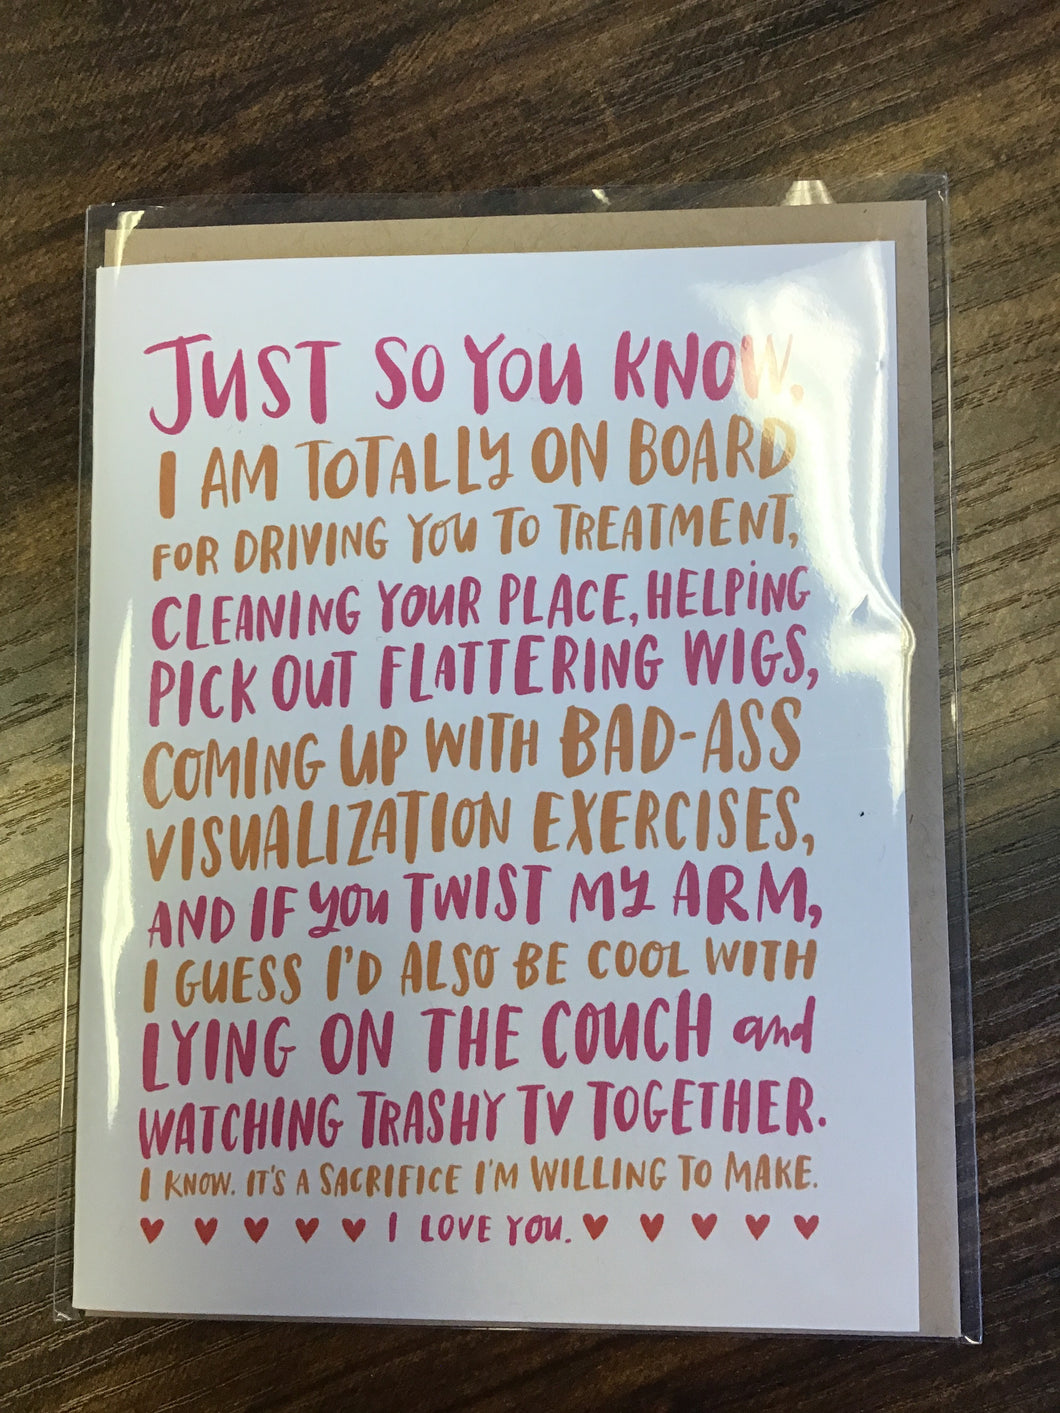 JUST SO YOU KNOW,
I AM TOTALLY ON BOARD
FOR DRIVING YOU TO TREATMENT,
CLEANING YOUR PLACE, HELPING
PICK OUT FLATTERING WIGS,
COMING UP WITH BAD-ASS
VISUALIZATION EXERCISES,
AND IF YOU TWIST MY ARM,
I GUESS I'D ALSO BE COOL WITH
LYING ON THE COUCH and
WATCHING TRASHY TV TOGETHER.
I KNOW. IT'S A SACRIFICE I'M WILLING TO MAKE.
I LOVE YOU.